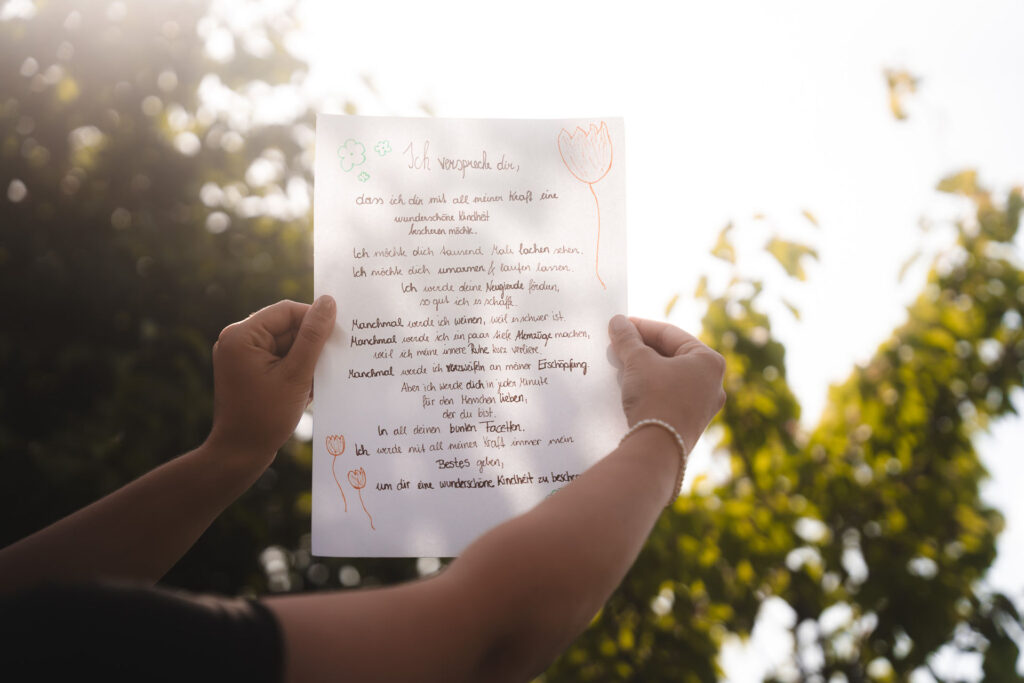 Ich verspreche dir,
dass ich dir mit all meiner Kraft eine
wunderschöne Kindheit
bescheren möchte.
Ich möchte dich tausend Male lachen sehen.
Ich möchte dich umarmen & laufen lassen.
Ich werde deine Neugierde fördern,
so gut ich es schaffe.
Manchmal werde ich weinen, weil es schwer ist.
Manchmal werde ich ein paar tiefe Atemzüge machen,
weil ich meine innere Ruhe kurz verliere.
Manchmal werde ich verzweifeln an meiner Erschöpfung.
Aber ich werde dich in jeder Minute
für den Menschen lieben,
der du bist.
In all deinen bunten Facetten.
Ich werde mit all meiner Kraft immer mein
Bestes geben,
um dir eine wunderschöne Kindheit zu